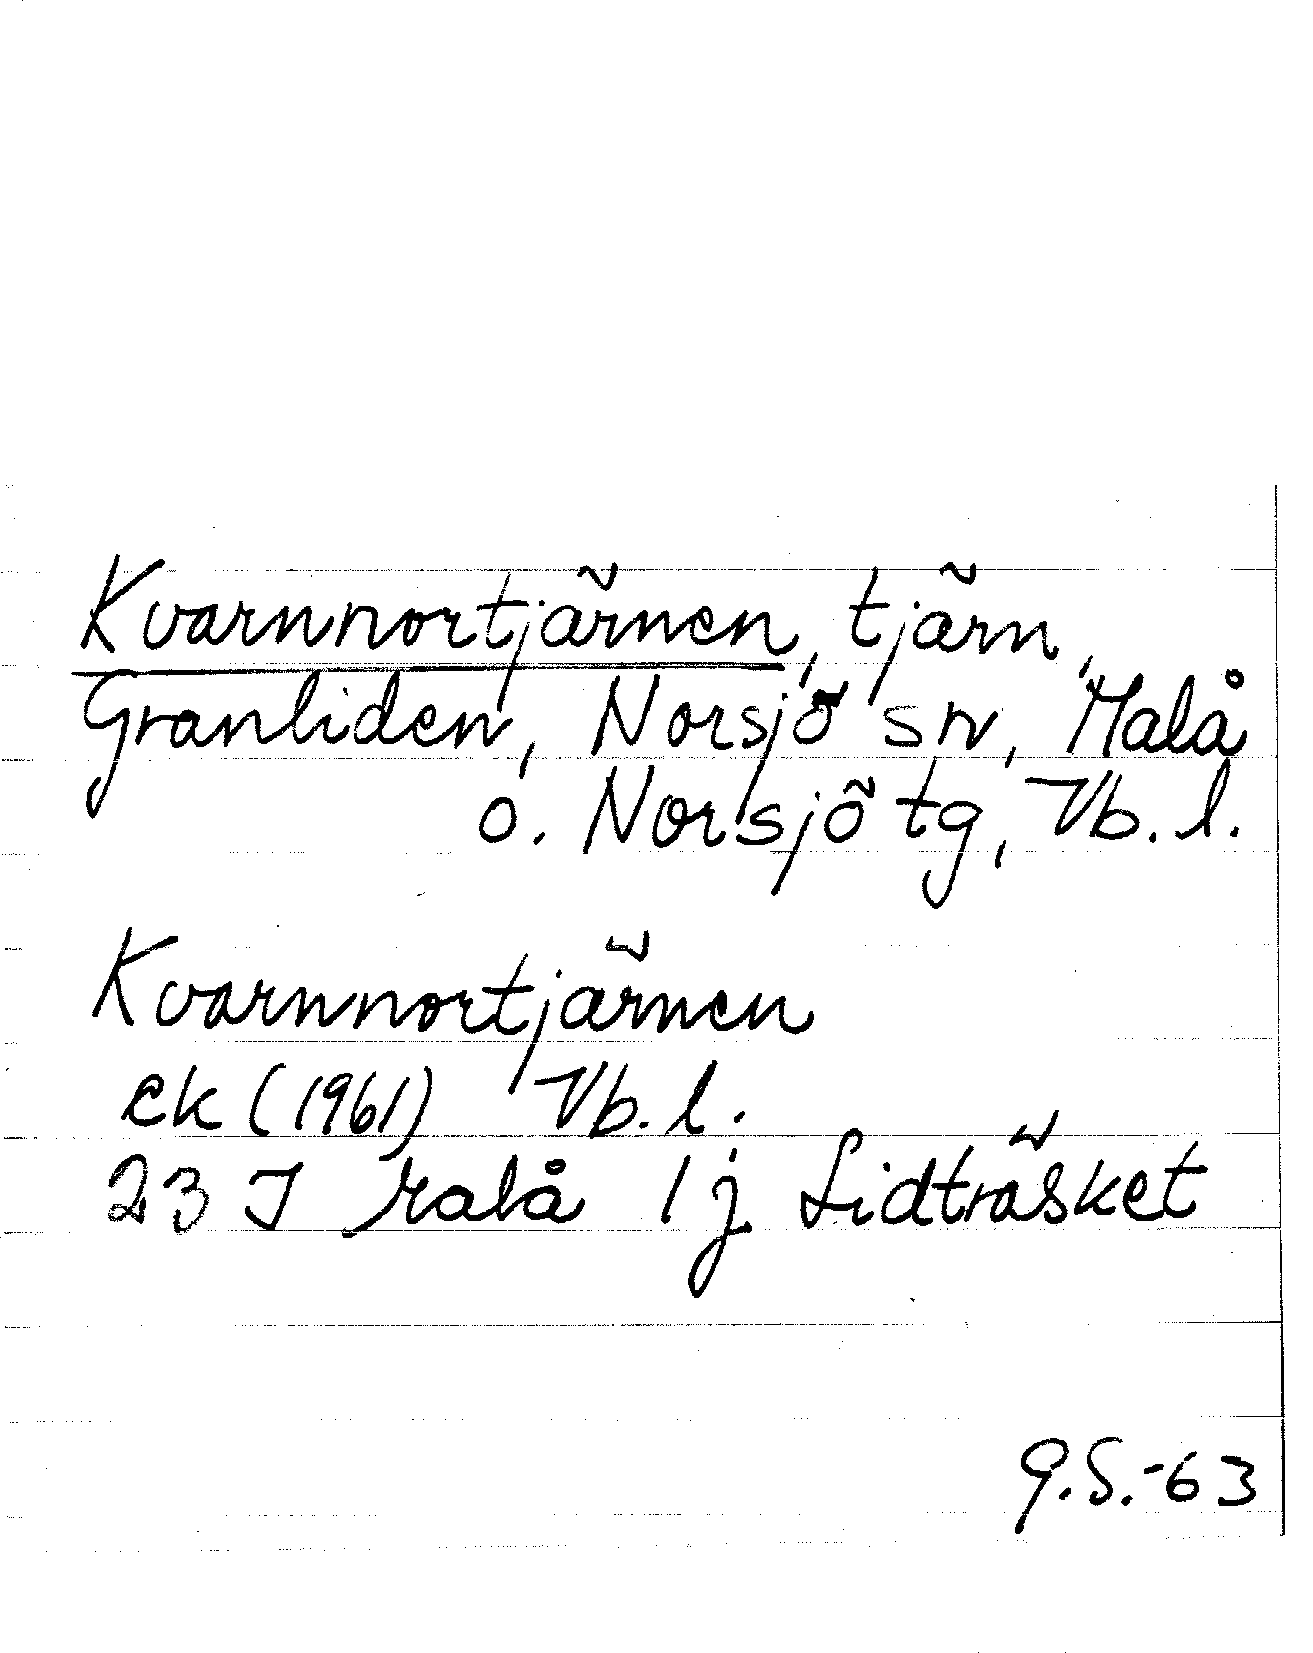 Kvarnnortjärnen, tjärn,
Granliden, Norsjö sn, Malå
o. Norsjö tg, Vb. l.
Kvarnnortjärnen
ek (1961) Vb. l.
23 J Malå 1 j Lidträsket
G.S.-63